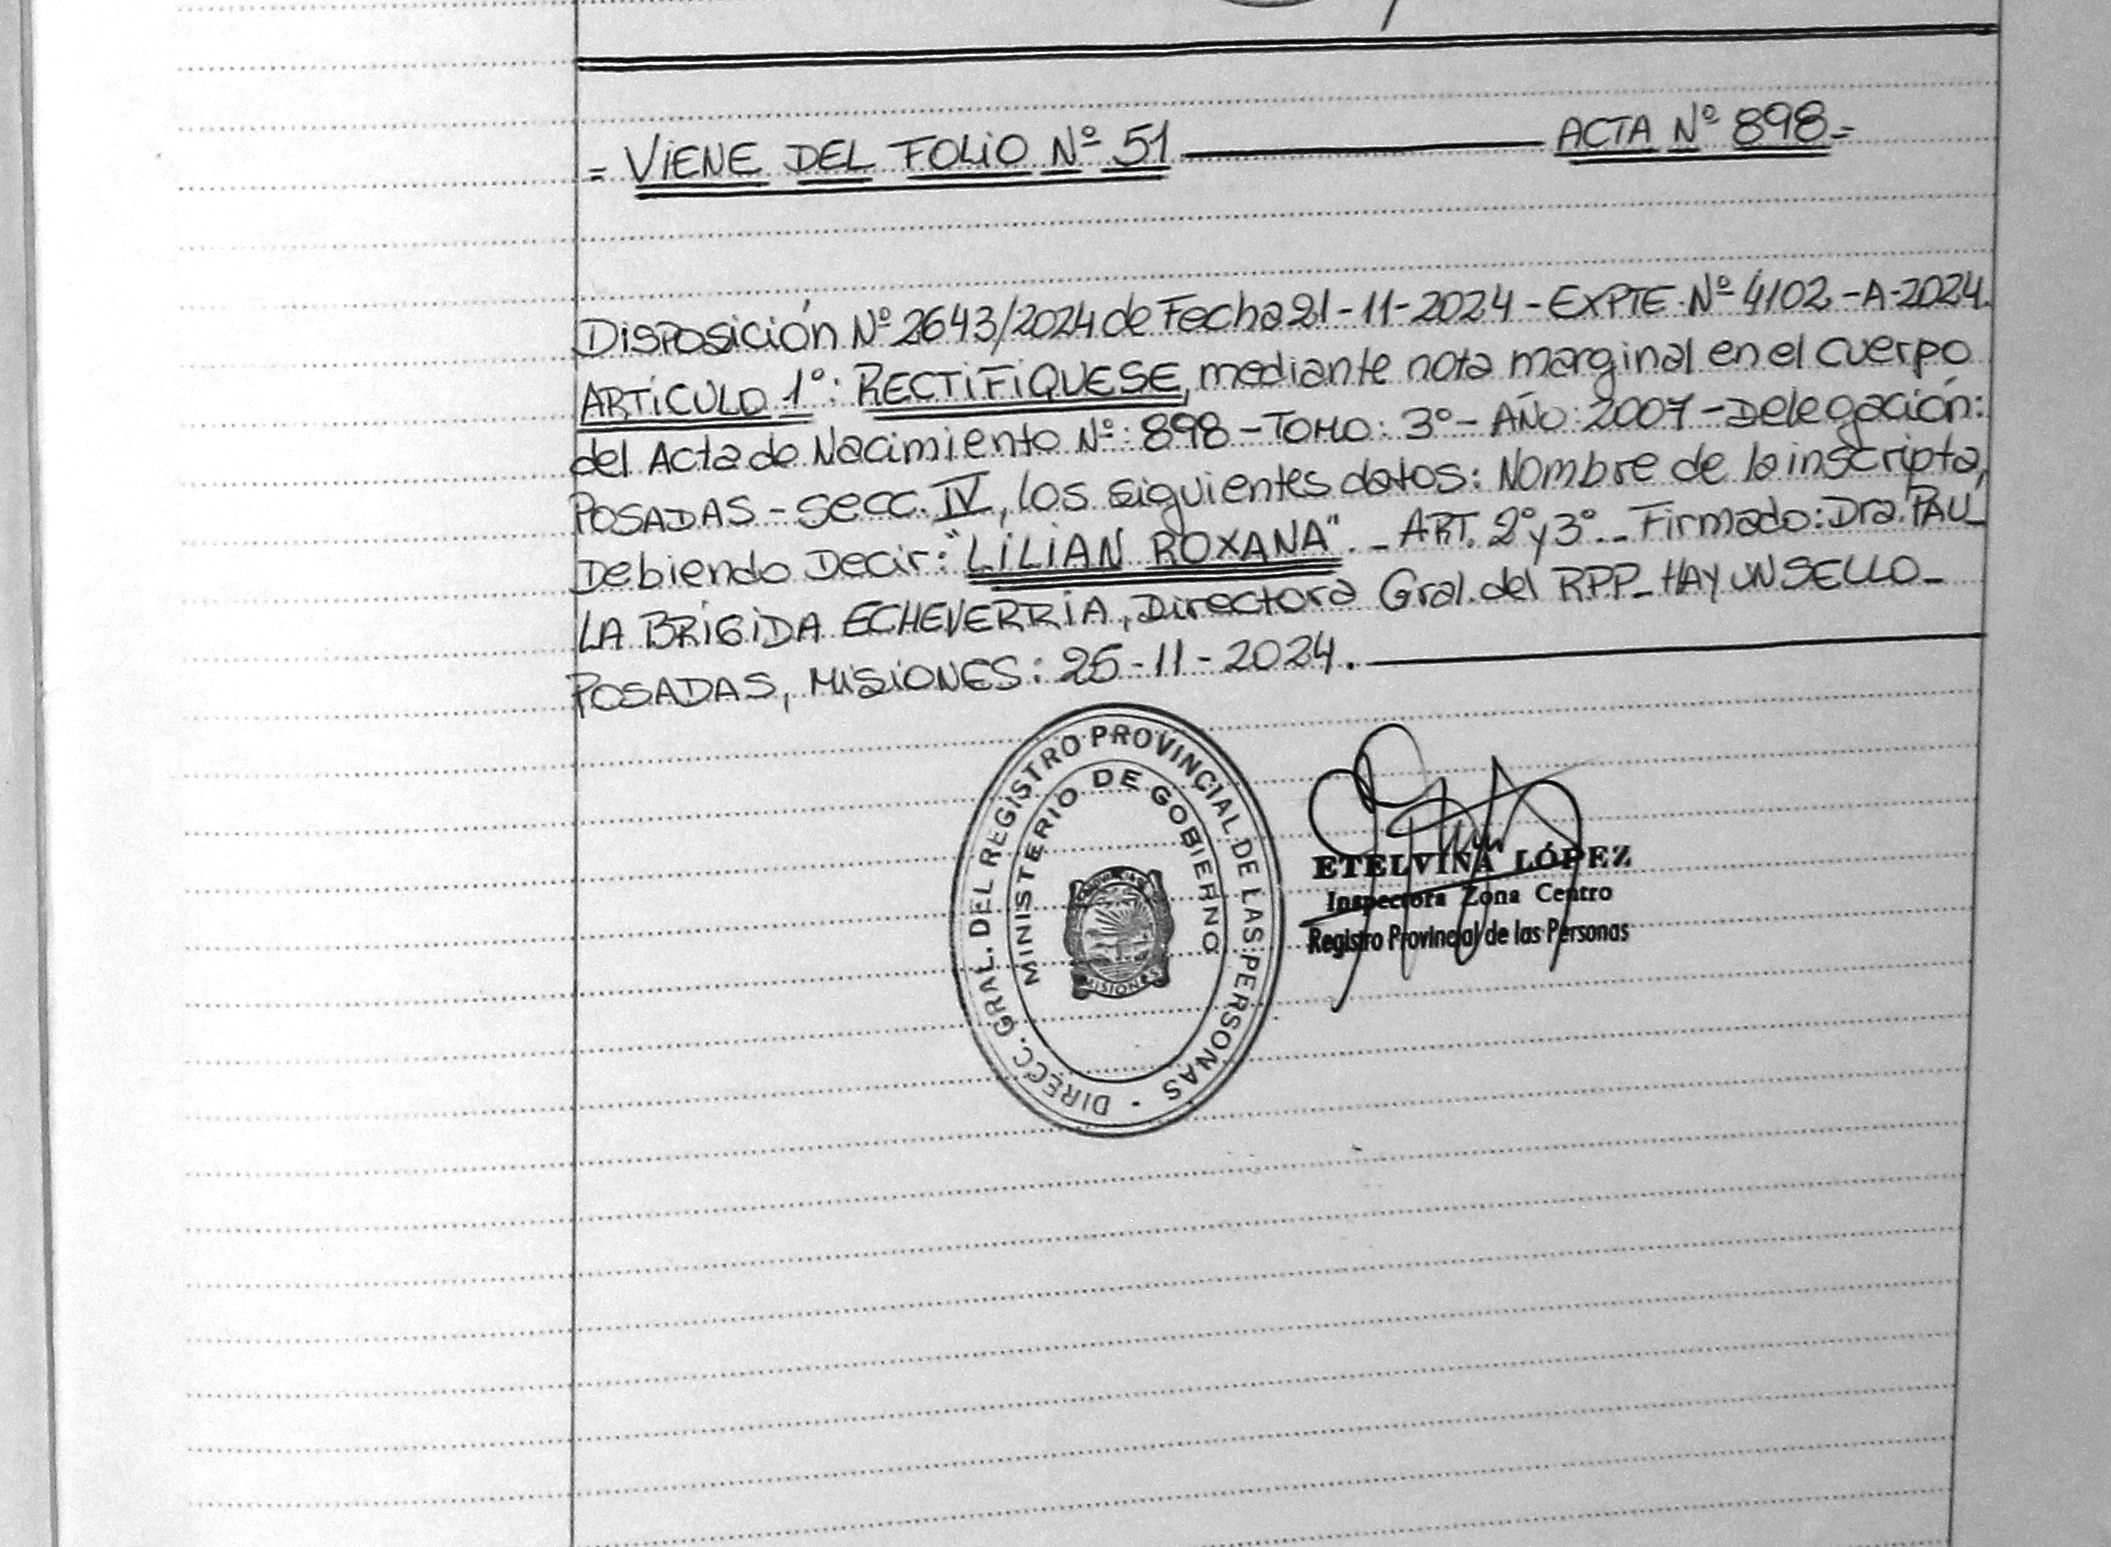 = VIENE DEL FOLIO Nº 51 ——— ACTA Nº 898 =
Disposición Nº 2643/2024 de Fecha 21-11-2024 - EXPTE Nº 4102-A-2024.
ARTÍCULO 1º: RECTIFIQUESE, mediante nota marginal en el cuerpo
del Acta de Nacimiento Nº: 898 - TOMO: 3º - AÑO: 2007 - Delegación:
POSADAS - secc. IV, los siguientes datos: Nombre de la inscripta,
Debiendo Decir: "LILIAN ROXANA". - ART. 2º y 3º. - Firmado: Dra. PAU_
LA BRÍGIDA ECHEVERRÍA, Directora Gral. del RPP_ HAY UN SELLO_
POSADAS, MISIONES: 25-11-2024. ———
DIRECC. GRAL. DEL REGISTRO PROVINCIAL DE LAS PERSONAS -
MINISTERIO DE GOBIERNO
MISIONES
ETELVINA LÓPEZ
Inspectora Zona Centro
Registro Provincial de las Personas